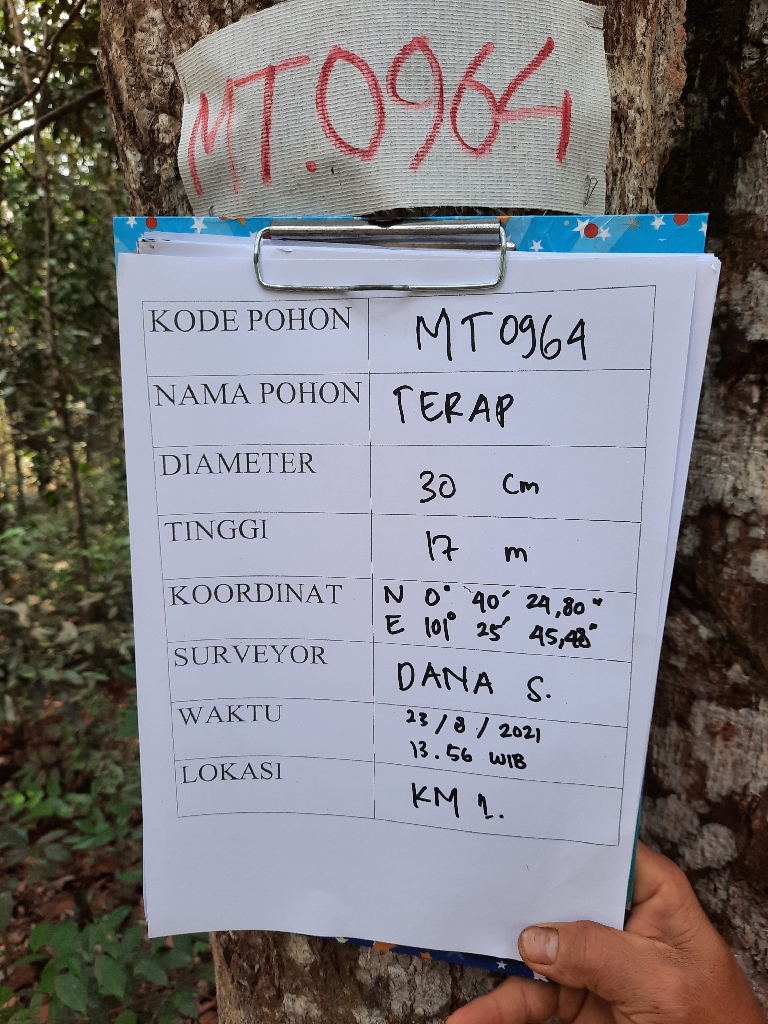 MT.0964
KODE POHON MT0964
NAMA POHON TERAP
DIAMETER 30 cm
TINGGI 17 m
KOORDINAT N 0° 40' 24,80"
E 101° 25' 45,48"
SURVEYOR DANA S.
WAKTU 23/8/2021
13.56 WIB
LOKASI KM 1.